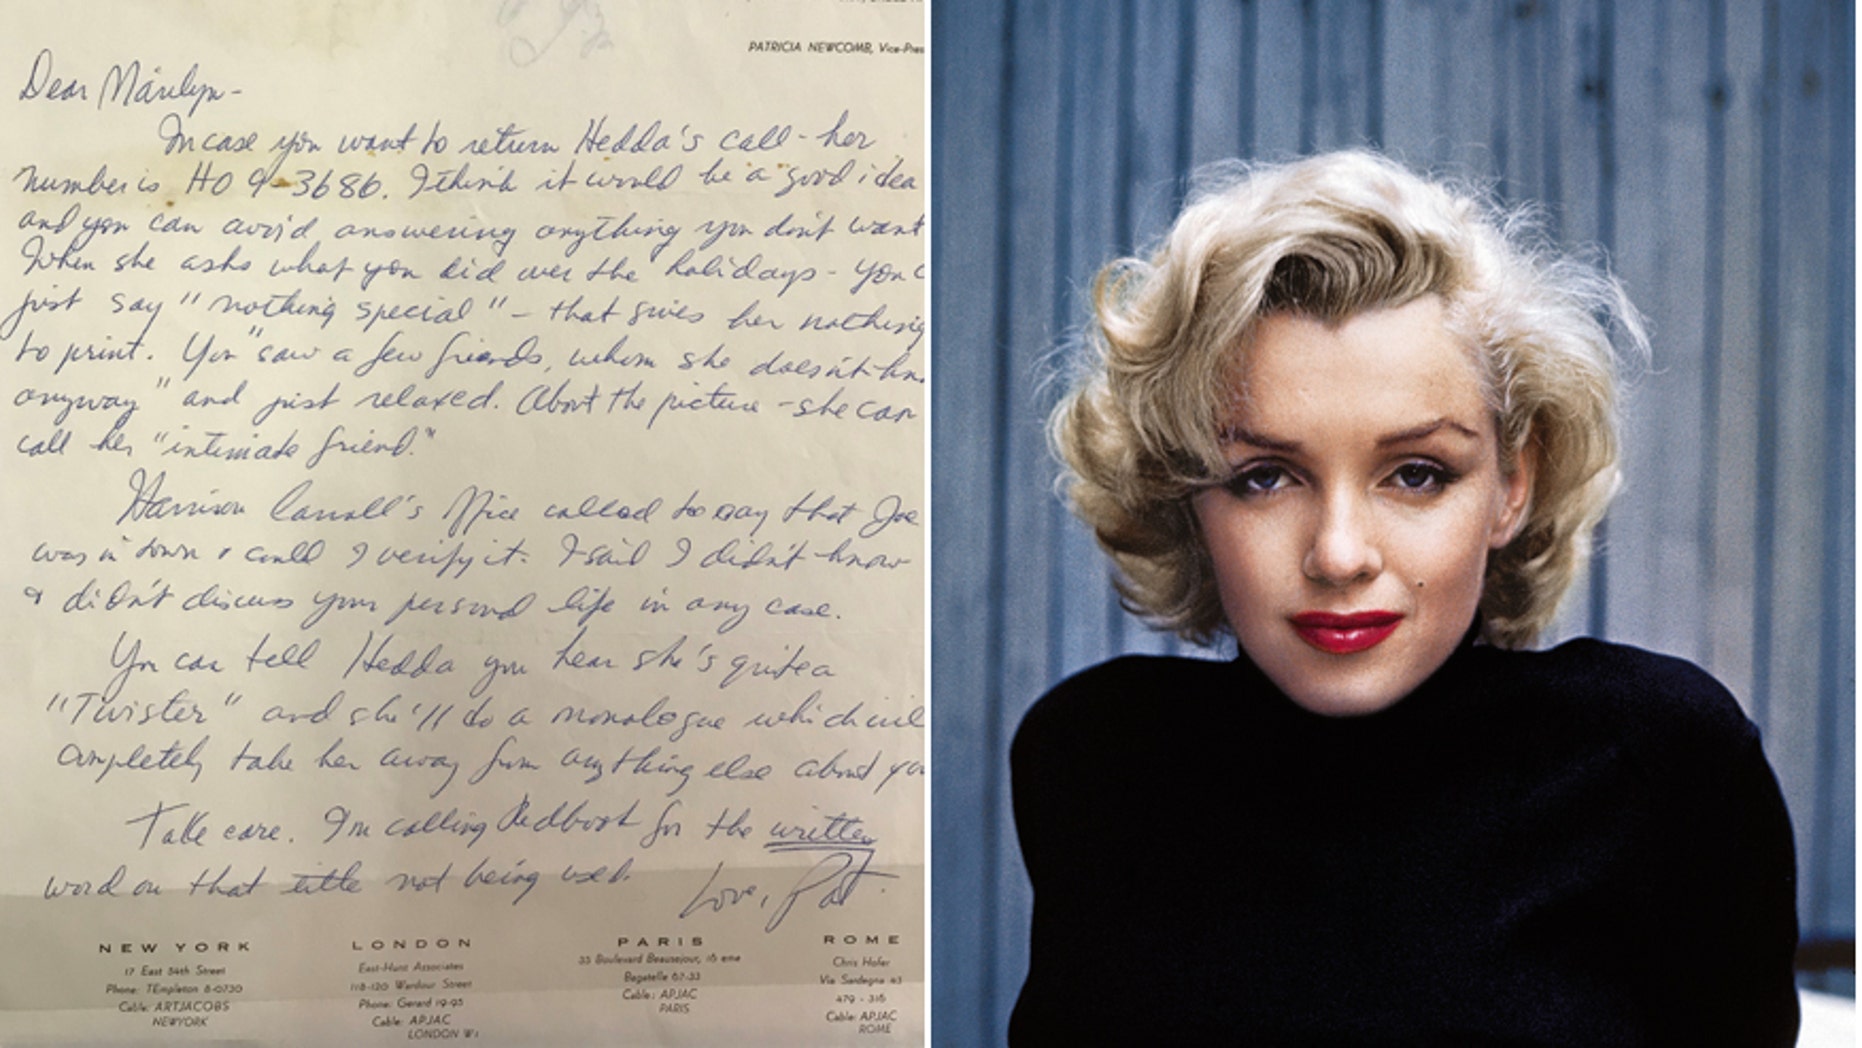 PATRICIA NEWCOMB, Vice-Pres
Dear Marilyn -
In case you want to return Hedda's call - her
number is HO 9-3686. I think it would be a good idea
and you can avoid answering anything you don't want
When she asks what you did over the holidays - you c
just say "nothing special" - that gives her nothing
to print. You "saw a few friends, whom she doesn't kn
anyway" and just relaxed. About the picture - she can
call her "intimate friend."
Harrison Carroll's office called to say that Joe
was in town & could I verify it. I said I didn't know
& didn't discuss your personal life in any case.
You can tell Hedda you hear she's quite a
"Twister" and she'll do a monologue which will
completely take her away from anything else about you
Take care. I'm calling Redbook for the written
word on that title not being used.
Love, Pat
NEW YORK
17 East 54th Street
Phone: TEmpleton 8-0730
Cable: ARTJACOBS
NEWYORK
LONDON
East-Hunt Associates
118-120 Wardour Street
Phone: Gerard 19-95
Cable: APJAC
LONDON W1
PARIS
33 Boulevard Beausejour, 16 eme
Bagatelle 67-33
Cable: APJAC
PARIS
ROME
Chris Hofer
Via Sardegna 43
479 - 316
Cable: APJAC
ROME